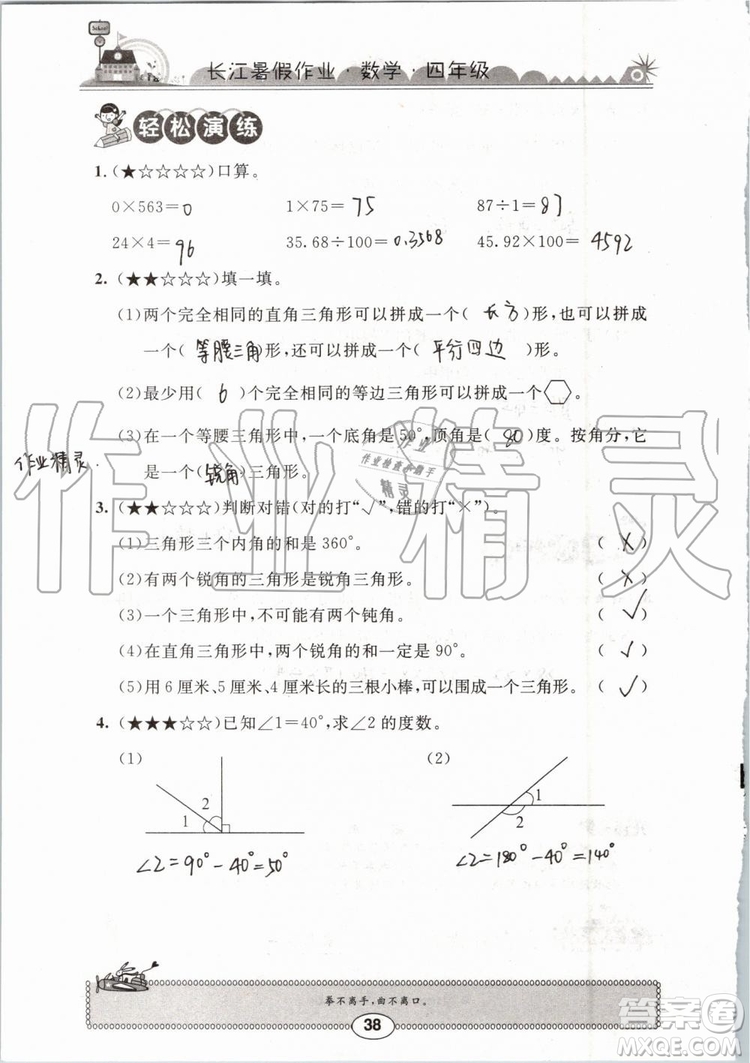 长江暑假作业·数学·四年级
轻松演练
1.(★☆☆☆☆)口算。
0×563=0 1×75=75 87÷1=87
24×4=96 35.68÷100=0.3568 45.92×100=4592
2.(★★☆☆☆)填一填。
(1)两个完全相同的直角三角形可以拼成一个(长方)形,也可以拼成
一个(等腰三角)形,还可以拼成一个(平行四边)形。
(2)最少用(6)个完全相同的等边三角形可以拼成一个 。
(3)在一个等腰三角形中,一个底角是50°,顶角是(80)度。按角分,它
作业精灵
是一个(锐角)三角形。
3.(★★☆☆☆)判断对错(对的打“√”,错的打“×”)。
(1)三角形三个内角的和是360°。 (×)
(2)有两个锐角的三角形是锐角三角形。 (×)
(3)一个三角形中,不可能有两个钝角。 (√)
(4)在直角三角形中,两个锐角的和一定是90°。 (√)
(5)用6厘米、5厘米、4厘米长的三根小棒,可以围成一个三角形。 (√)
4.(★★★☆☆)已知∠1=40°,求∠2的度数。
(1) (2)
2 1
1 2
∠2=90°-40°=50° ∠2=180°-40°=140°
拳不离手,曲不离口。
38
作业精灵
作业
作业检查小助手
精灵
答案圈
MXQE.COM